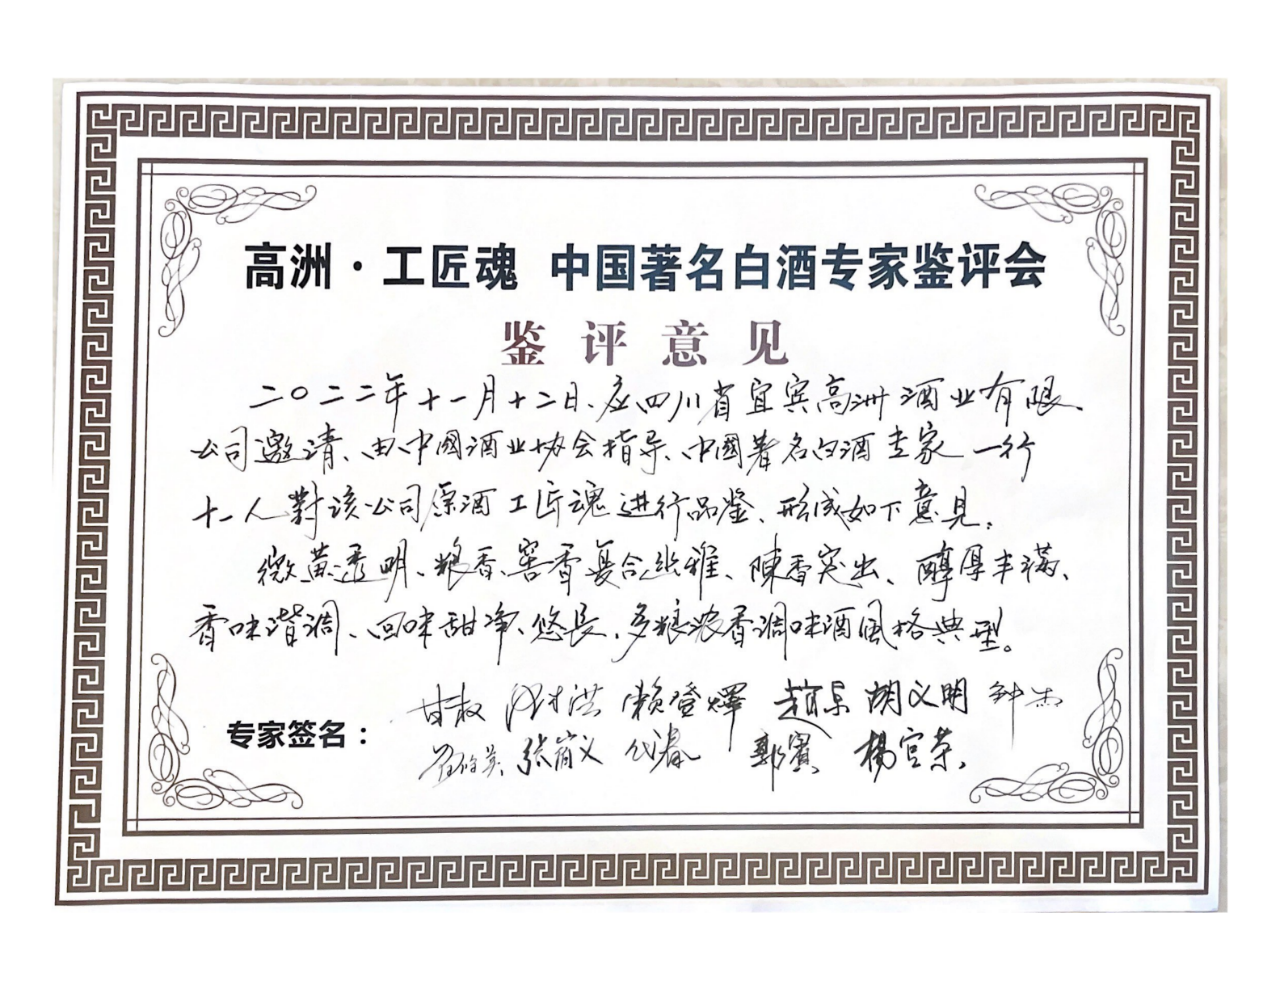 高洲·工匠魂 中国著名白酒专家鉴评会
鉴评意见
二〇二二年十一月十二日、应四川省宜宾高洲酒业有限
公司邀请、由中國酒业协会指导、中國著名白酒专家一行
十一人對该公司原酒工匠魂进行品鉴、形成如下意见:
微黄透明、粮香、窖香复合幽雅、陳香突出、醇厚丰满、
香味谐调、回味甜净、悠長、多粮浓香调味酒风格典型。
专家签名:
甘权 赖登燡 胡义明 钟杰
张宿义 郭賓 楊官荣